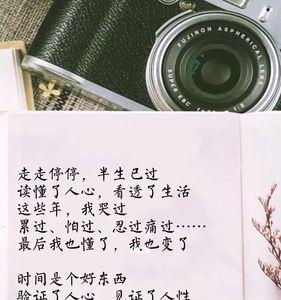 FUJINON ASPHERICAL LENS
SUPER EBC
走走停停，半生已过
读懂了人心，看透了生活
这些年，我哭过
累过、怕过、忍过痛过……
最后我也懂了，我也变了
时间是个好东西
验证了人心，见证了人性